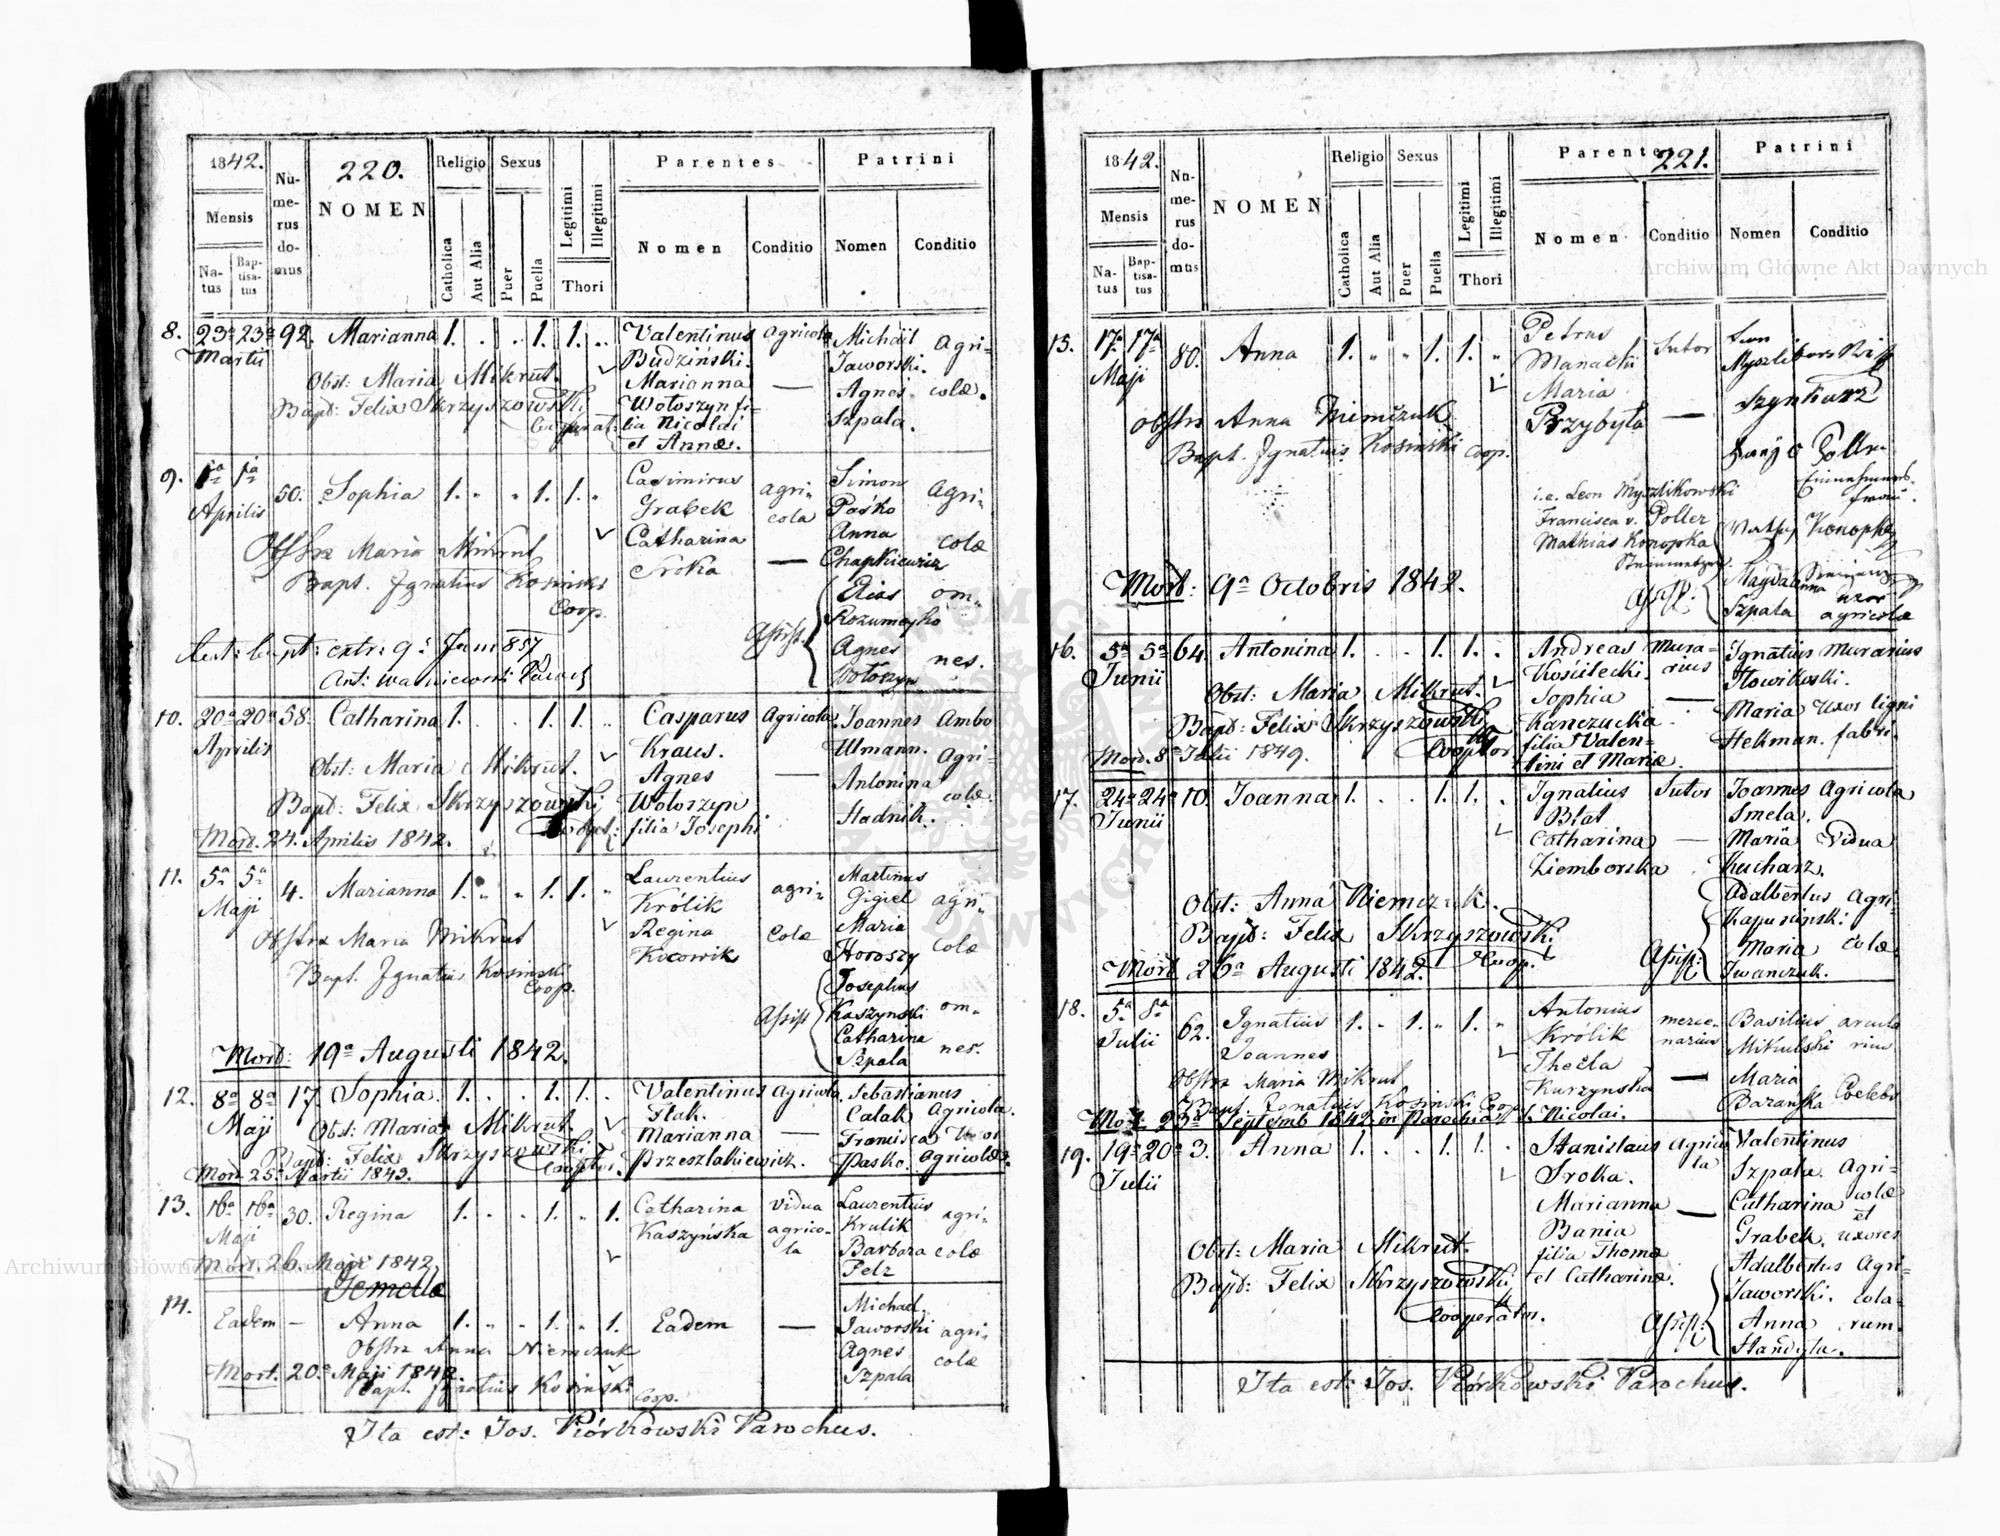 1842.
220.
Religio Sexus Parentes Patrini
Mensis
Numerus domus
NOMEN
Catholica
Aut Alia
Puer
Puella
Legitimi
Illegitimi
Thori
Nomen Conditio Nomen Conditio
Natus
Baptisatus
8. 23a 23a 92. Marianna 1. . . 1. 1. . Valentinus Agricola Michaël Agri-
Martii Budziński. Jaworski.
Obst: Maria Mikrut. Marianna — Agnes colæ.
Bapt: Felix Skrzyszowski Wołoszyn fi- Szpala.
lia Nicolai
et Annæ.
9. 1a 1a 50. Sophia 1. " " 1. 1. " Casimirus agri- Simon Agri-
Aprilis Grabek cola Paśko
Obstrx Maria Mikrut Catharina Anna colæ
Bapt. Ignatius Kosinski Sroka —
Coop. Elias om-
Assist.
Agnes nes.
Wołoszyn
10. 20a 20a 58. Catharina 1. . . 1. 1. . Casparus Agricola Joannes Ambo
Aprilis Kraus. Ulmann. Agri-
Obst: Maria Mikrut. Agnes — Antonina colæ.
Bapt: Felix Skrzyszowski Wołoszyn Hadnik.
filia Josephi
Mort. 24. Aprilis 1842.
11. 5a 5a 4. Marianna 1. " " 1. 1. " Laurentius agri- Martinus agri-
Maji Królik Gigiel
Obstrx Maria Mikrut Regina colæ Maria colæ
Bapt. Ignatius Kosinski Kocowik Horoszy
Coop. Josephus
Assist Kaszynski om-
Catharina
Szpala nes.
Mort: 19a Augusti 1842.
12. 8a 8a 17. Sophia. 1. . . 1. 1. . Valentinus Agricola Sebastianus
Maji Obst: Maria Mikrut Ptak. Calak Agricola.
Bapt: Felix Skrzyszowski Marianna — Francisca Uxor
Cooptor. Przeszlakiewicz. Pasko. Agricolæ.
Mort. 25a Martii 1843.
13. 16a 16a 30. Regina 1. " " 1. " 1. Catharina Vidua Laurentius agri-
Maji Kaszyńska agrico- Krulik
la Barbara colæ
Mort. 26. Maji 1842 Pelz
Gemellæ
14. Eadem — Anna 1. " " 1. " 1. Eadem — Michael
Jaworski agri-
Obstrx Anna Niemczuk Agnes colæ
Mort. 20a Maji 1842. Szpala
Bapt. Ignatius Kosinski Coop.
Ita est: Jos. Piórkowski Parochus.
1842.
221.
Religio Sexus Parentes Patrini
Mensis
Numerus domus
NOMEN
Catholica
Aut Alia
Puer
Puella
Legitimi
Illegitimi
Thori
Nomen Conditio Nomen Conditio
Natus
Baptisatus
15. 17a 17a 80. Anna 1. " " 1. 1. " Petrus Sutor Leon
Maji
Maria
Obstrx Anna Niemczuk Przybyła —
Bapt. Ignatius Kosinski Coop.
i.e. Leon Myszlikowski
Francisca v. Poller
Mathias Konopka
Assist: Magdalena uxor
Szpala agricolæ
Mort: 9a Octobris 1842.
16. 5a 5a 64. Antonina 1. . . 1. 1. . Andreas Mura- Ignatius Murarius
Junii Kościelecki. rius Słowikoski.
Obst: Maria Mikrut. Sophia — Maria Uxor ligni
Bapt: Felix Skrzyszowski Kanczucka Hekman. fabri.
Cooptor filia Valen-
Mort. 8a Julii 1849. tini et Mariæ.
17. 24a 24a 10. Joanna 1. . . 1. 1. . Ignatius Sutor Joannes Agricola
Junii Błat Smela.
Catharina — Maria Vidua
Ziemborska Kucharz.
Obst: Anna Niemczuk. Adalbertus Agri-
Bapt: Felix Skrzyszowski. Kapusinski.
Coop. Assist: Maria colæ
Mort 26a Augusti 1842. Iwanczuk.
18. 5a 5a 62. Ignatius 1. " 1. " 1. " Antonius merce- Basilius
Julii Joannes Królik narius Mikulski
Obstrx Maria Mikrut Thecla — Maria Coelebs
Bapt. Ignatius Kosinski Coop Kurzynska
Mort. 23a Septemb 1842 in Parochia f. Nicolai.
19. 19a 20a 3. Anna 1. . . 1. 1. . Stanislaus Agrico Valentinus
Julii Sroka. la Szpala. Agri-
Marianna — Catharina colæ
Bania et
Obst: Maria Mikrut. filia Thomæ Grabek. uxores
Bapt: Felix Skrzyszowski et Catharinæ. Adalbertus Agri-
Cooperator. Jaworski. cola-
Assist: Anna rum.
Handyla.
Ita est: Jos. Piórkowski Parochus.
Archiwum Główne Akt Dawnych